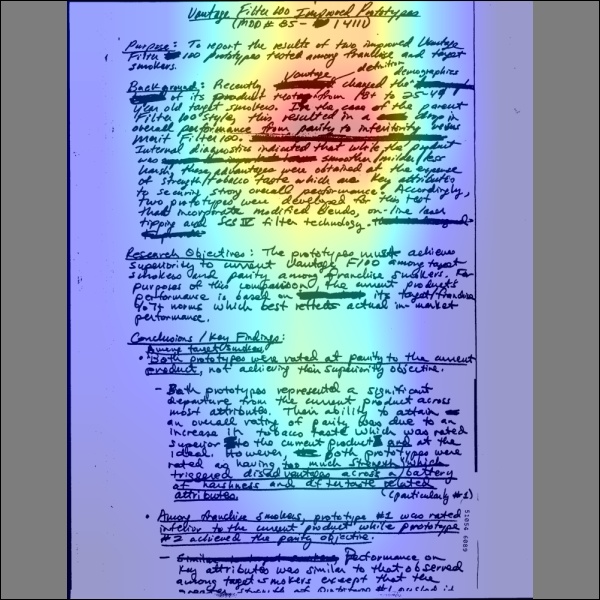 Vantage Filter 100 Improved Prototypes
(MDD # 85 - 1411)
Purpose: To report the results of two improved Vantage
Filter 100 prototypes tested among franchise and target
smokers.
definition
demographics
Vantage
Background: Recently changed the
of its product testing from 18+ to 25-49
year old target smokers. In the case of the parent
Filter 100 style, this resulted in a drop in
overall performance from parity to inferiority versus
Merit Filter 100.
Internal diagnostics indicated that while the product
was smoother/milder/less
harsh, these advantages were obtained at the expense
of strength/tobacco taste which are key attributes
to securing strong overall performance. Accordingly,
two prototypes were developed for this test
that incorporate modified blends, on-line laser
tipping and SCS IV filter technology.
Research Objectives: The prototypes must achieve
superiority to current Vantage F100 among target
smokers and parity among franchise smokers. For
purposes of this comparison, the current product's
performance is based on its target/franchise
norms which best reflects actual in-market
performance.
Conclusions/Key Findings:
Among target smokers,
• Both prototypes were rated at parity to the current
product, not achieving their superiority objective.
- Both prototypes represented a significant
departure from the current product across
most attributes. Their ability to attain
an overall rating of parity was due to an
increase in tobacco taste which was rated
superior to the current product and at the
ideal. However both prototypes were
rated as having too much strength which
triggered disadvantages across a battery
of harshness and aftertaste related
attributes. (particularly #1)
• Among franchise smokers, prototype #1 was rated
inferior to the current product while prototype
#2 achieved the parity objective.
- Performance on
key attributes was similar to that observed
among target smokers except that the
greater strength of prototype #1 resulted in
51054 6089